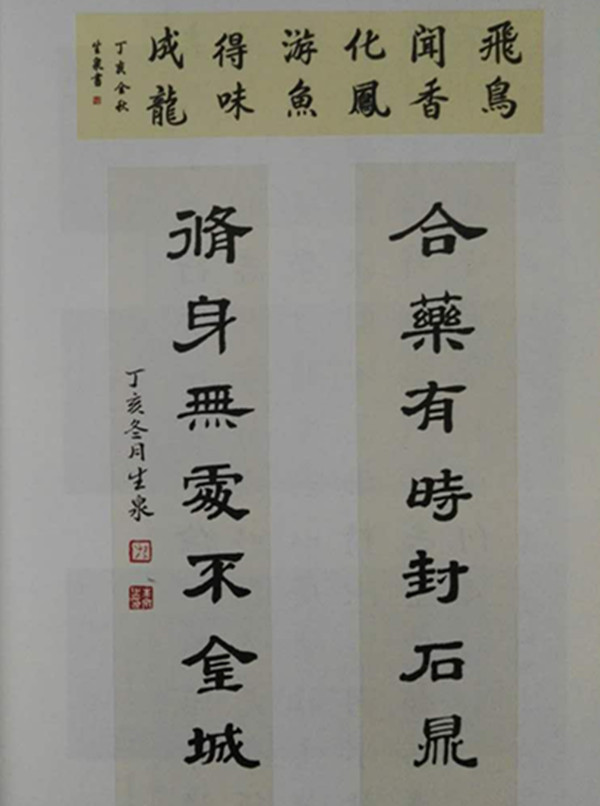 飛鳥
聞香
化鳳
游魚
得味
成龍
丁亥金秋
生泉書
合藥有時封石鼎
脩身無處不金城
丁亥冬月生泉